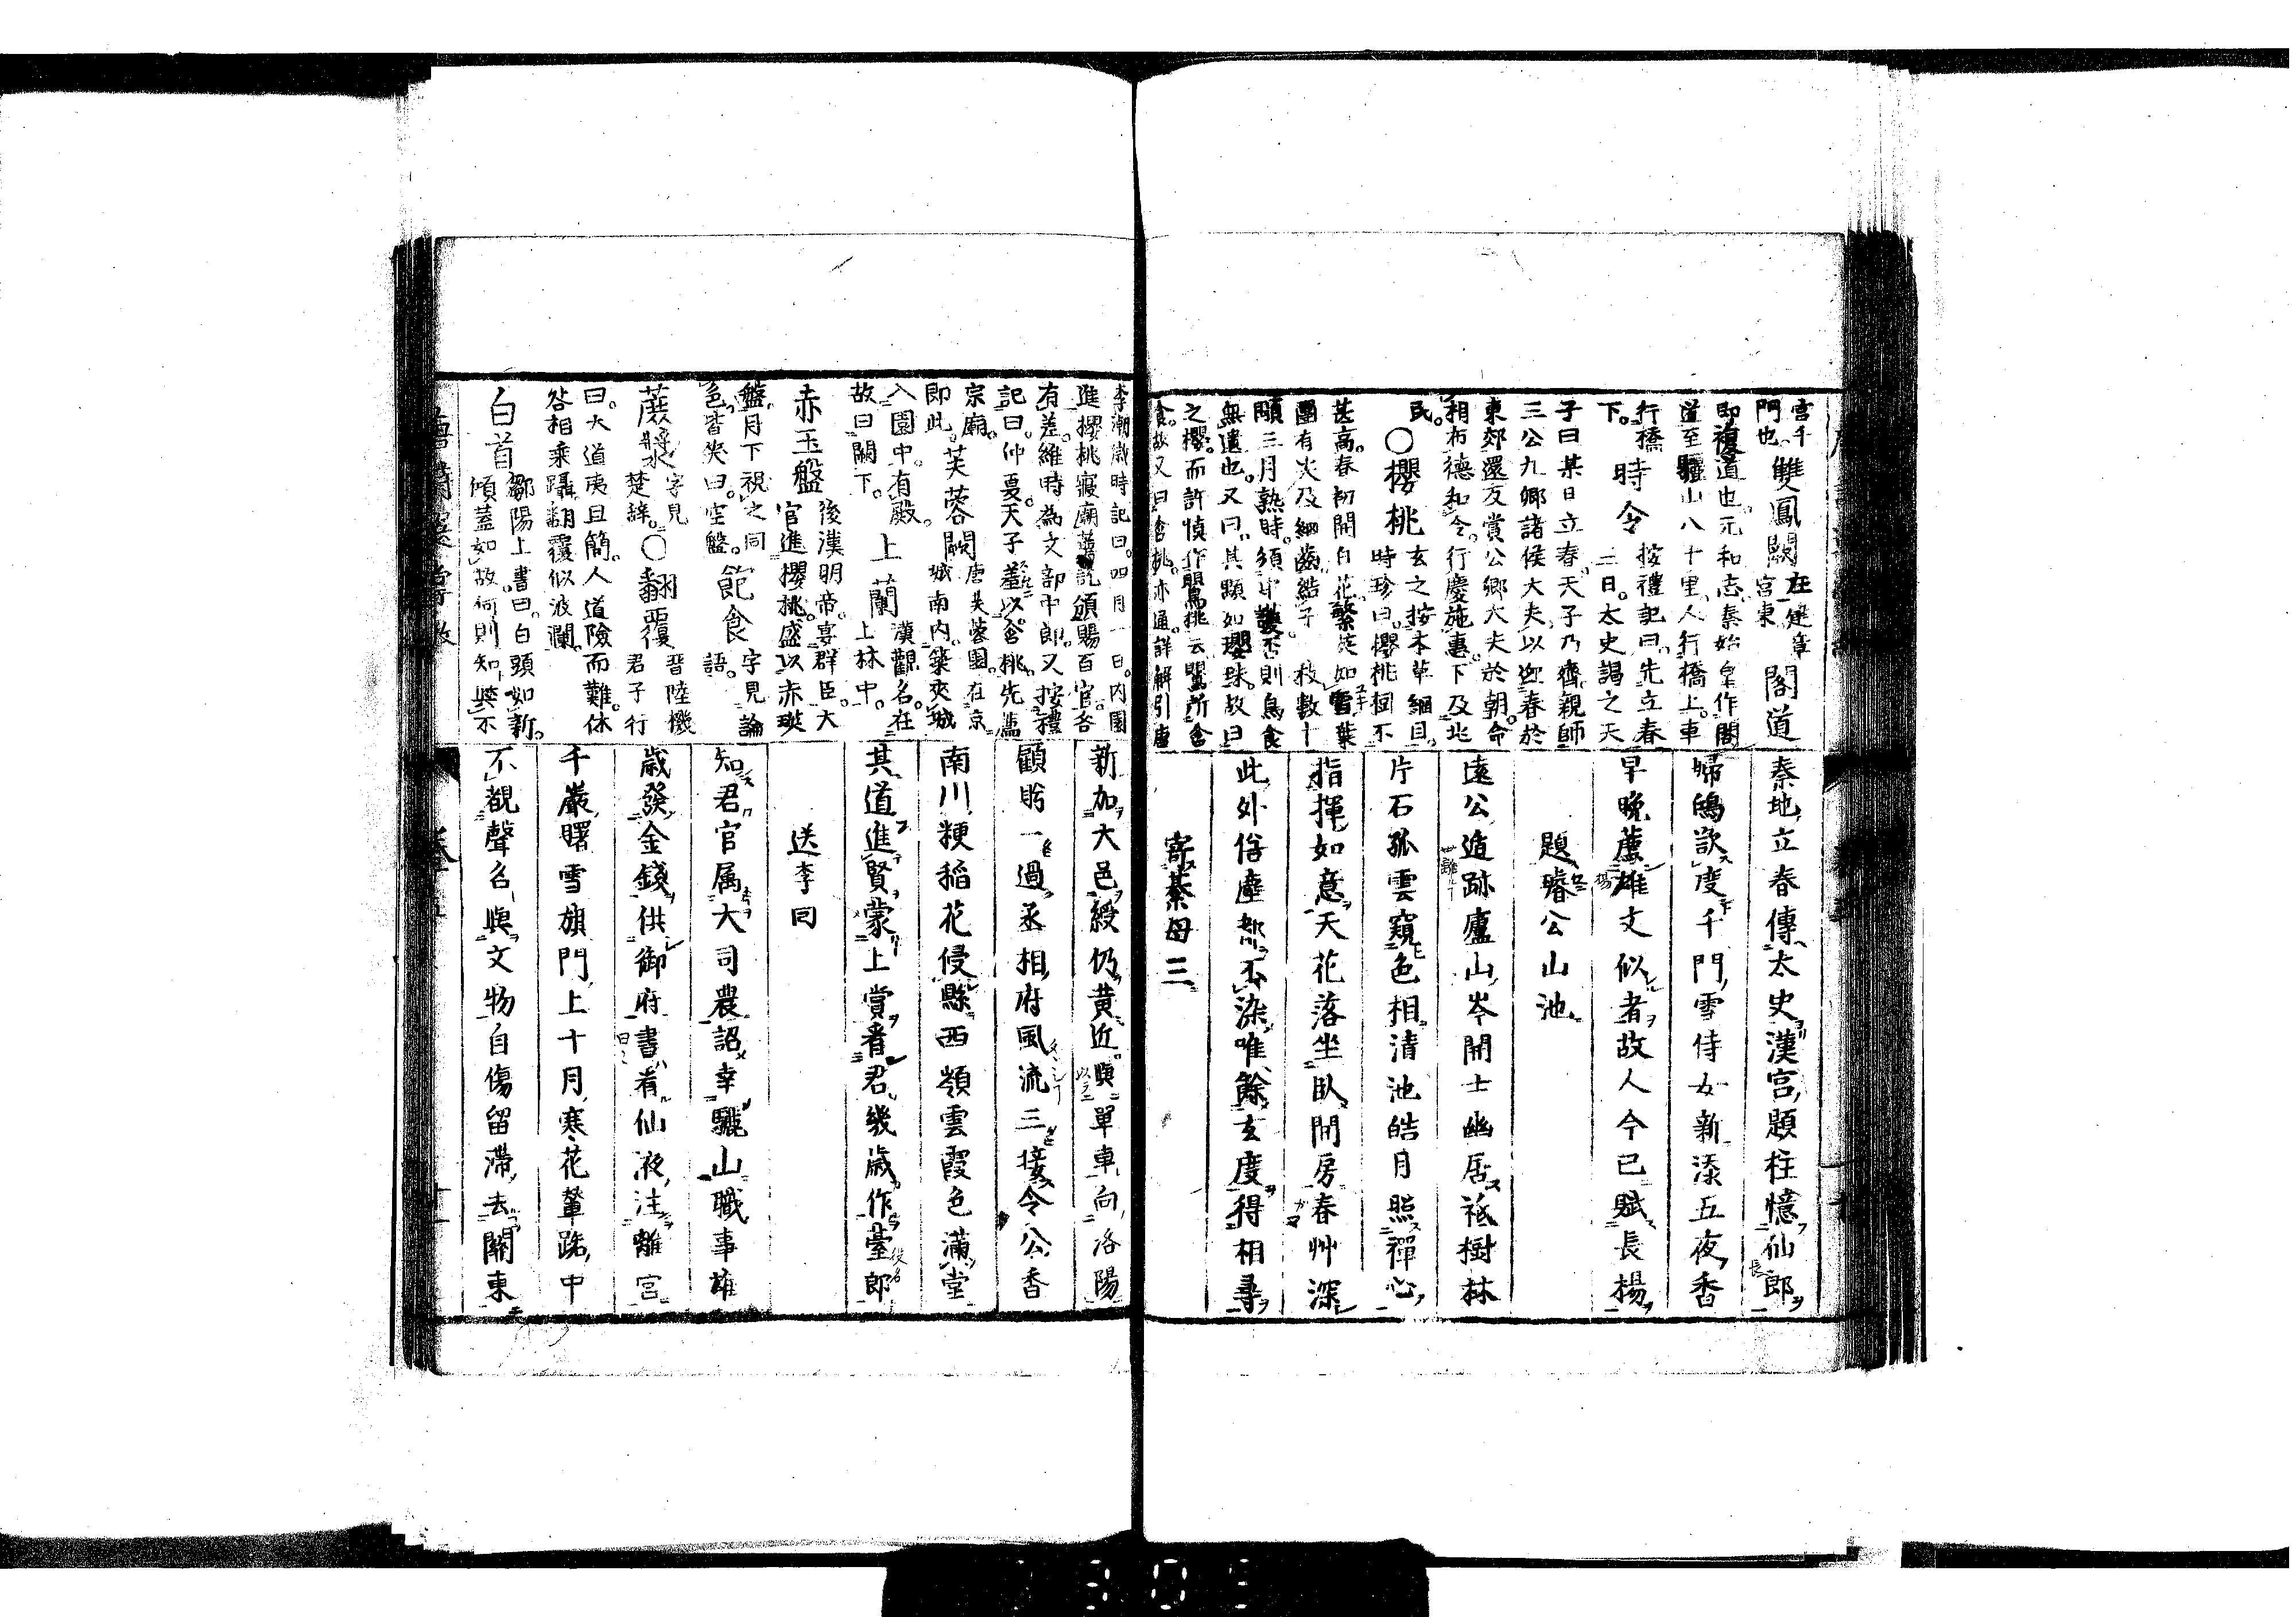 宮千
門也雙鳳闕在建章
宮東閣道
即複道也元和志秦始皇作閣
道至驪山八十里人行橋上車
行橋下時令按禮記曰先立春
三日太史謁之天
子曰某日立春天子乃齊親帥
三公九卿諸侯大夫以迎春於
東郊還反賞公卿大夫於朝命
相布德和令行慶施惠下及兆
民○櫻桃玄之按本草綱目
時珍曰櫻桃樹不
甚高春初開白花繁英如雪葉
團有尖及細齒結子一枝數十
顆三月熟時須守護否則鳥食
無遺也又曰其顆如瓔珠故曰
之櫻而許慎作鸎桃云鸎所含
食故又曰含桃亦通詳解引唐
秦地立春傳太史漢宮題柱憶仙郎
歸鴻欲度千門雪侍女新添五夜香
早晚薦雄文似者故人今已賦長楊
題璿公山池
遠公遁跡廬山岑開士幽居祇樹林
片石孤雲窺色相清池皓月照禪心
指揮如意天花落坐臥閒房春艸深
此外俗塵都不染唯餘玄度得相尋
寄綦毋三
李淖歲時記曰四月一日內園
進櫻桃寢廟薦訖頒賜百官各
有差維時為文部中郎又按禮
記曰仲夏天子羞以含桃先薦
宗廟
即此芙蓉闕唐芙蓉園在京
城南內築夾城
入園中有殿上蘭漢觀名在
上林中
故曰闕下
赤玉盤後漢明帝宴群臣大
官進櫻桃盛以赤瑛
盤月下視之同
色皆笑曰空盤飽食字見論
語
蔗漿字見
楚辭○翻覆晉陸機
君子行
曰大道夷且簡人道險而難休
咎相乘躡翻覆似波瀾
白首鄒陽上書曰白頭如新
傾蓋如故何則知與不
新加大邑綬仍黃近與單車向洛陽
顧眄一過丞相府風流三接令公香
南川粳稻花侵縣西嶺雲霞色滿堂
其道進賢蒙上賞看君幾歲作臺郎
送李回
知君官属大司農詔幸驪山職事雄
歲發金錢供御府晝看仙液注離宮
千巖曙雪旗門上十月寒花輦路中
不覩聲名與文物自傷留滯去關東